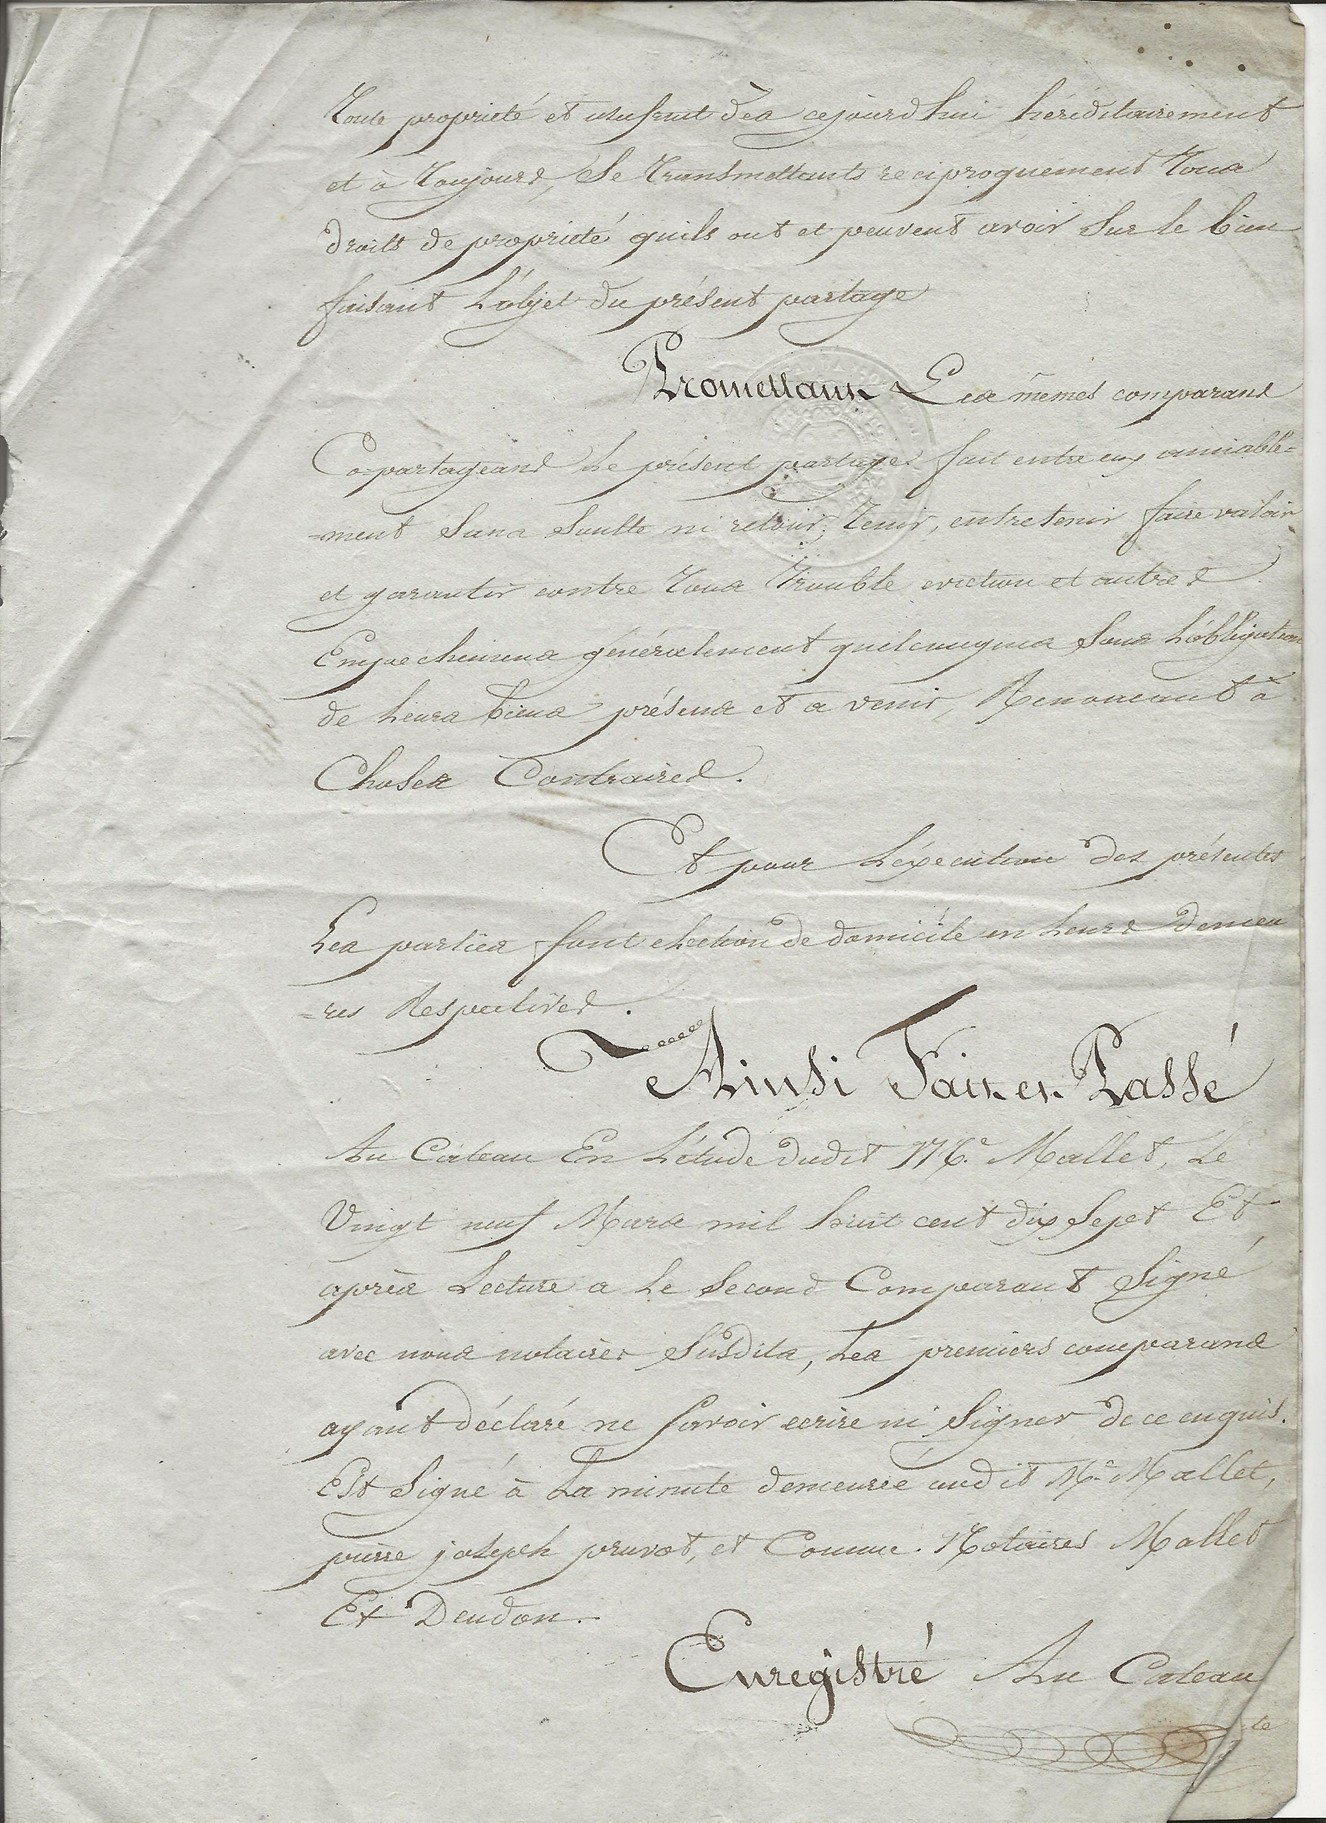 Toute propriété et usufruit dès cejourd'hui héréditairement
et à Toujours, Se Transmettants reciproquement Tous
droits de propriété quils ont et peuvent avoir Sur le bien
faisant L'objet du présent partage
Promettant Les mêmes comparans
Copartageans Le présent partage fait entre eux amiable=
=ment Sans Soulte ni retour, Tenir, entretenir faire valoir
et garantir contre Tous Trouble eviction et autres
Empechemens généralement quelconques Sous L'obligation
de Leurs biens présens et a venir, Renonceant à
Choses Contraires.
Et pour L'éxecution des présentes
Les parties font election de domicile en Leurs demeu
=res Respectives.
Ainsi Fait et Passé
Au Cateau En L'étude dudit Me. Mallet, Le
Vingt neuf Mars mil huit cent dix Sept Et
après Lecture a Le Second Comparant Signé
avec nous notaires Susdits, Les premiers comparans
ayant déclaré ne Savoir ecrire ni Signer de ce enquis.
Est Signé à La minute demeurée audit Me. Mallet,
pierre joseph pruvot, et Comme Notaires Mallet
Et Deudon.
Enregistré Au Cateau
le